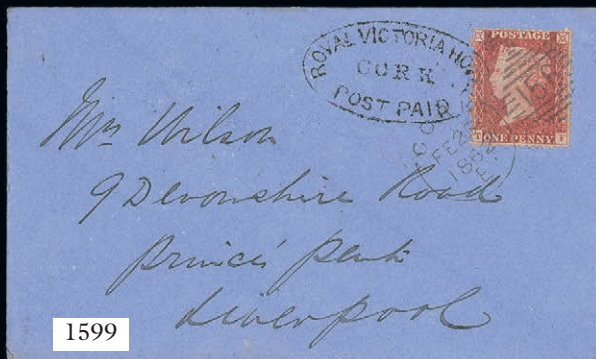 ROYAL VICTORIA HO
CORK
POST PAID
POSTAGE
ONE PENNY
FE
186
Mrs Wilson
9 Devonshire Road
Princes Park
Liverpool
1599